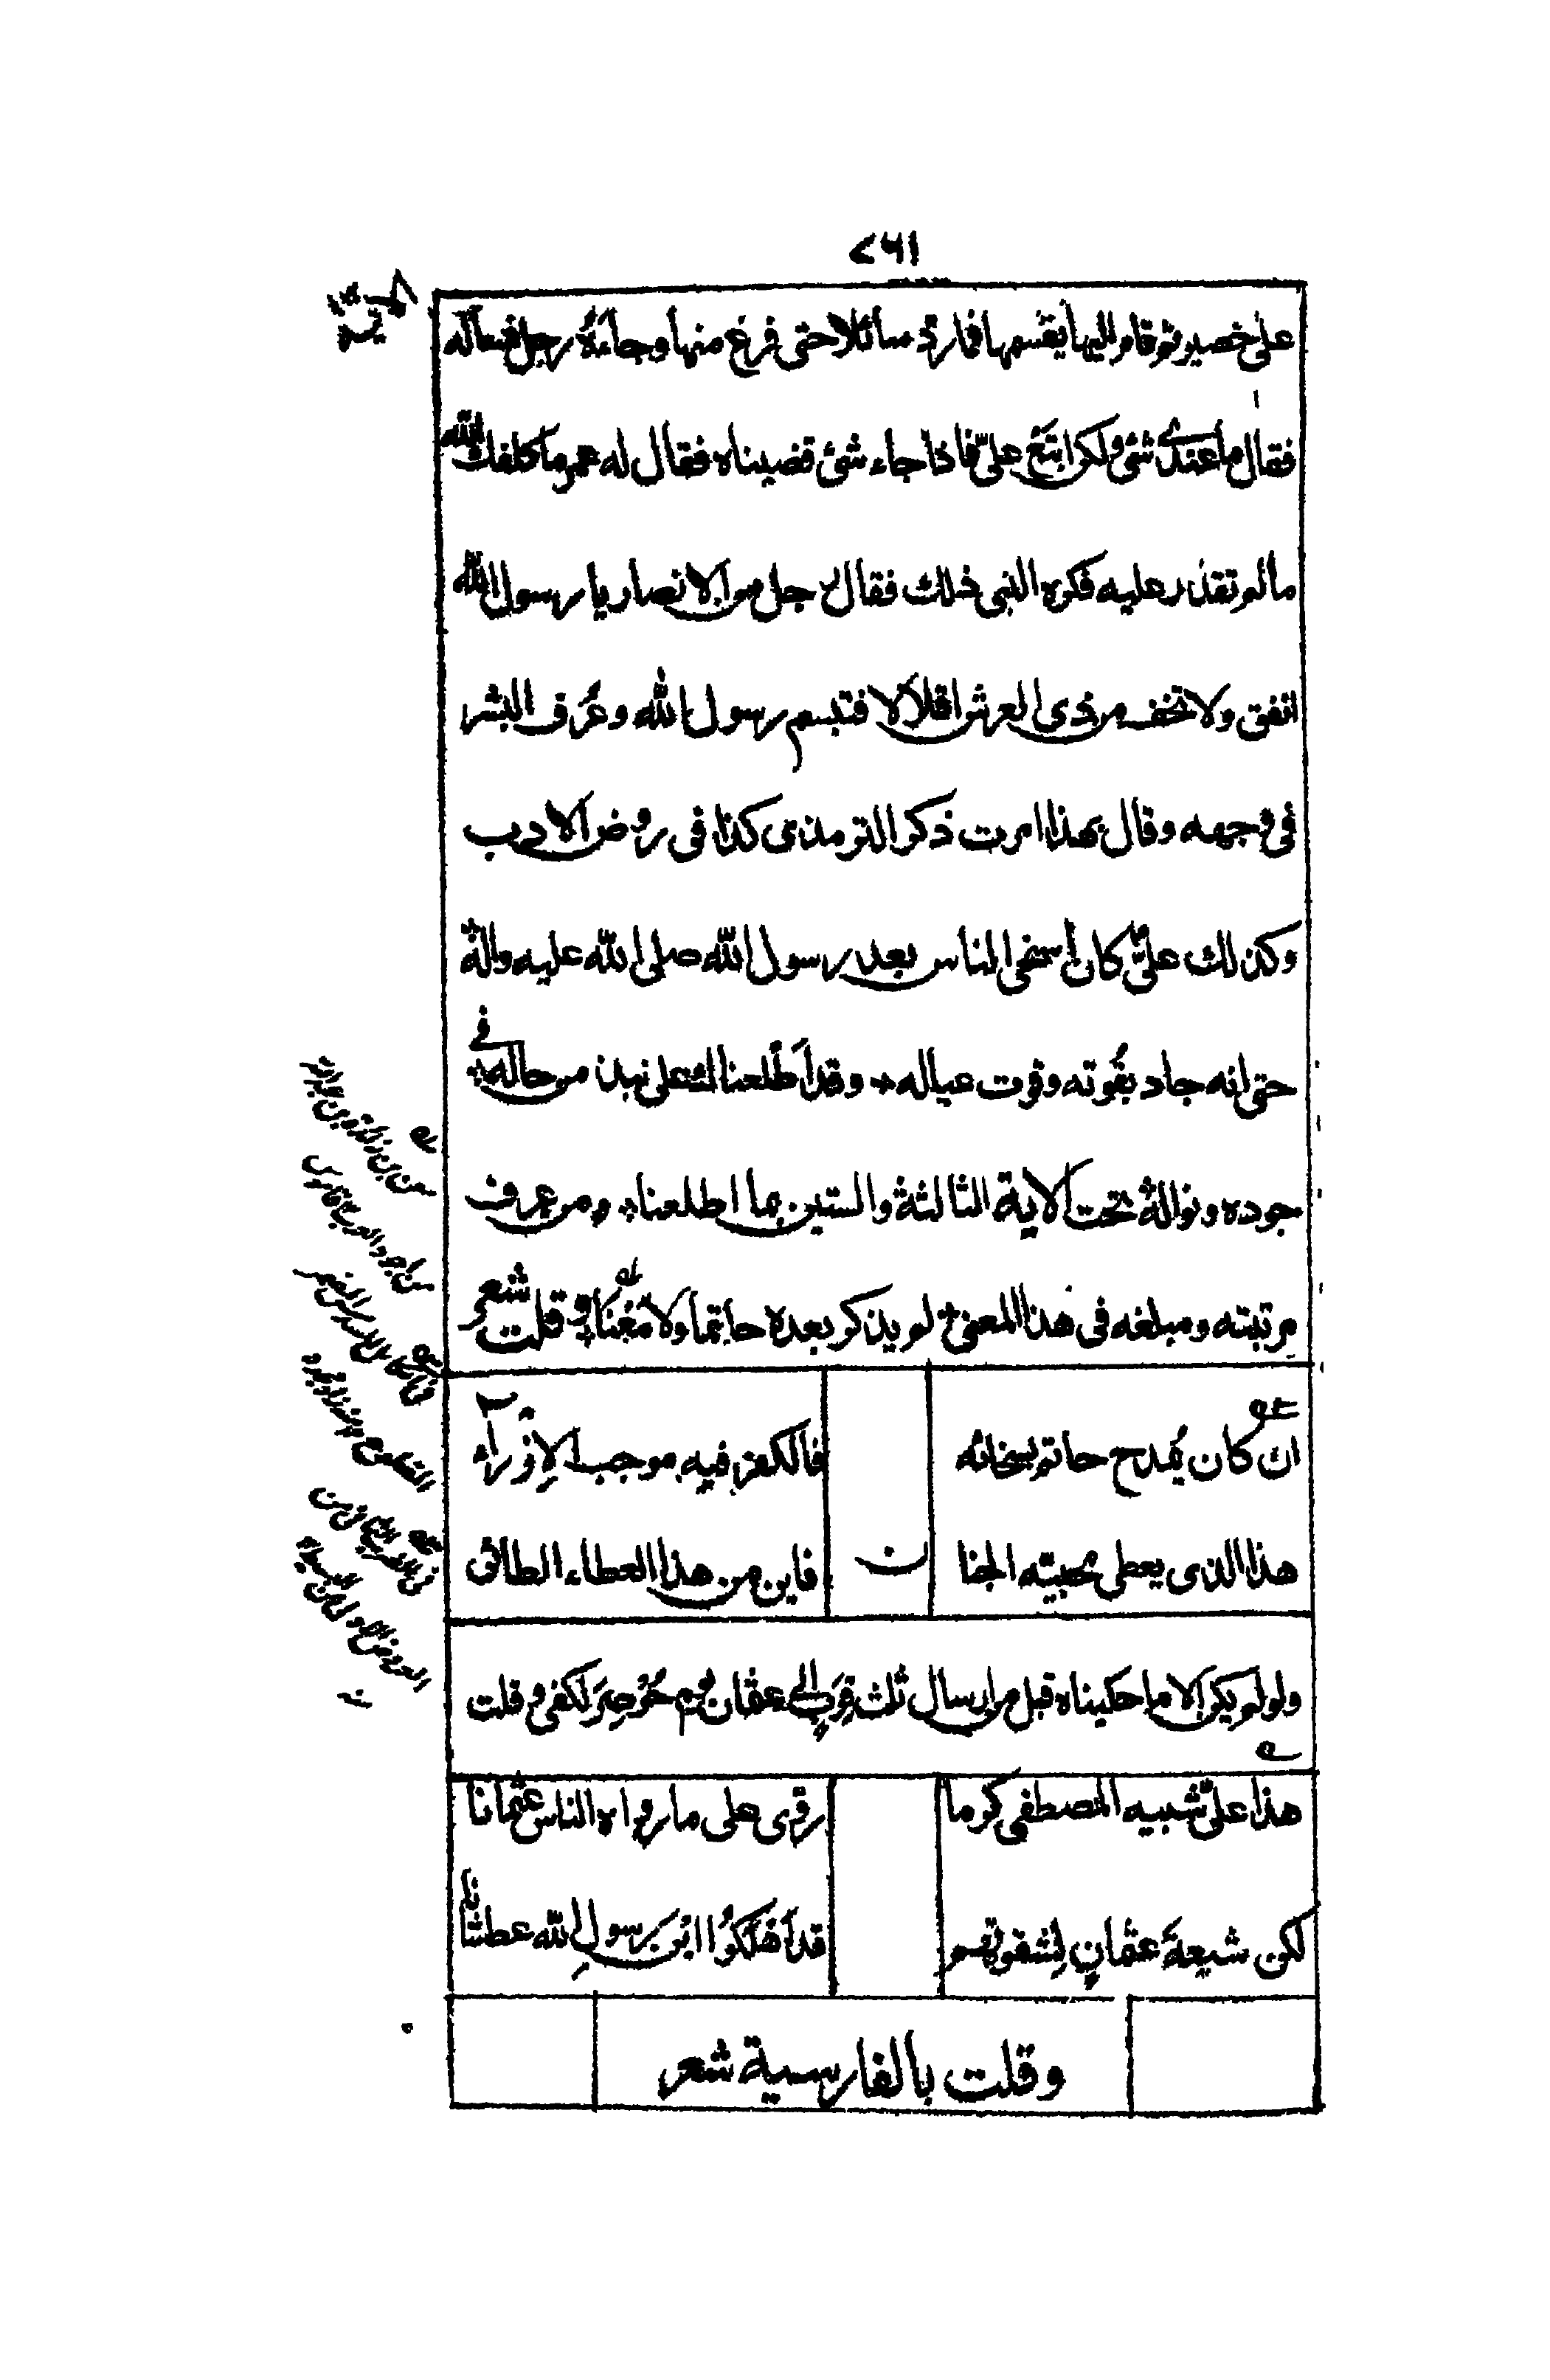 ٧٦١
على خصير ثم قام اليها يقسمها فما رد سائلا حتى فرغ منها وجاءه رجل فسأله
فقال ما عندى شئ ولكن ابتع علىّ فاذا جاء شئ قضيناه فقال له عمر ما كلفك الله
ما لم تقدر عليه فكره النبى ذلك فقال رجل من الانصار يا رسول الله
انفق ولا تخف من ذى العرش اقلالا فتبسم رسول الله وعُرف البشر
فى وجهه وقال بهذا امرت ذكر الترمذى كذا فى روض الادب
وكذلك علىّ كان أسخى الناس بعد رسول الله صلى الله عليه وآله
حتى انه جاد بقُوته وقوت عياله وقد أطلعناك على نبذ من حاله فى
جوده ونواله تحت الآية الثالثة والستين بما اطلعنا ومن عرف
مرتبته ومبلغه فى هذا المعنى لم يذكر بعده حاتما ولا مَعْنا وقلت شعر
ان كان يُمدح حاتم بسخائه
فالكفر فيه موجب الإزراء
هذا الذى يعطى محبيّه الجنا
ن
فاين من هذا العطاء الطائى
ولو لم يكن الا ما حكيناه قبل من ارسال ثلث قِرَبٍ الى عثمان يوم حُوصِرَ لكفى وقلت
هذا علىّ شبيه المصطفى كرما
رقّى على ما رواه الناس عثمانا
لكن شيعة عثمانٍ لِشقوتهم
قد أهلكوا ابن رسولِ الله عطشانا
وقلت بالفارسية شعر